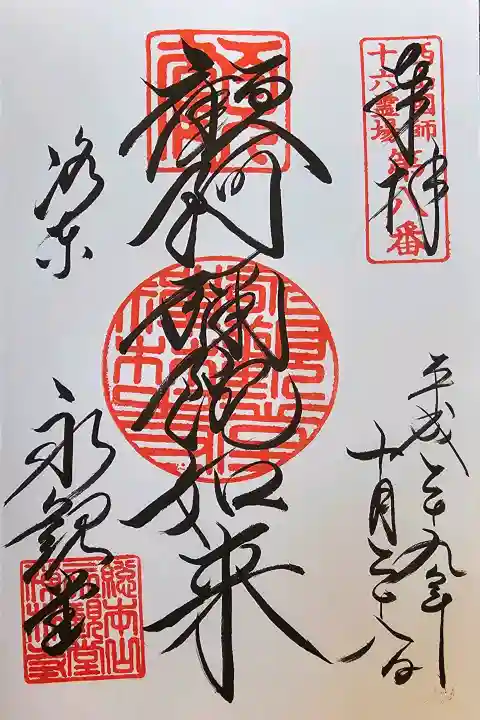 奉拝
西山国師
十六霊場
第八番
平成二十九年
十月二十八日
顧阿彌陀如来
洛東
永観堂
総本山
永観堂
禅林寺